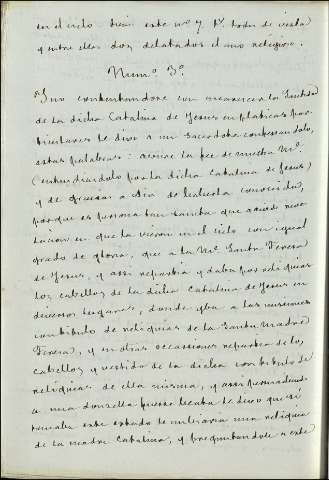 en el cielo. Tiene este nº y tº. todos de vista
y entre ellos dos delatados el uno religioso.
Num.º 3.º
Y no contentandose con encarecer la santidad
de la dicha Catalina de Jesus en platicas par-
ticulares le dixo a un Sacerdote confesandolo,
estas palabras: avive la fee de nuestra M.e
(entendiendolo por la dicha Catalina de Jesus)
y de gracias a Dios de haberla conocido,
porque es persona tan santa que aquede reve-
lacion en que la vieron en el cielo con igual
grado de gloria, que a la M.e Santa Teresa
de Jesus, y assi repartia y daba por reliquias
los cabellos de la dicha Catalina de Jesus en
diversos lugares, donde yba a las misiones
con titulo de reliquias de la Santa Madre
Teresa, y en otras occassiones repartia de los
cabellos y vestido de la dicha con titulo de
reliquias de ella misma, y assi persuadiendo
a una donzella fuesse beata le dixo que si
tomaba este estado le enbiaria una reliquia
de la madre Catalina, y preguntandole a este